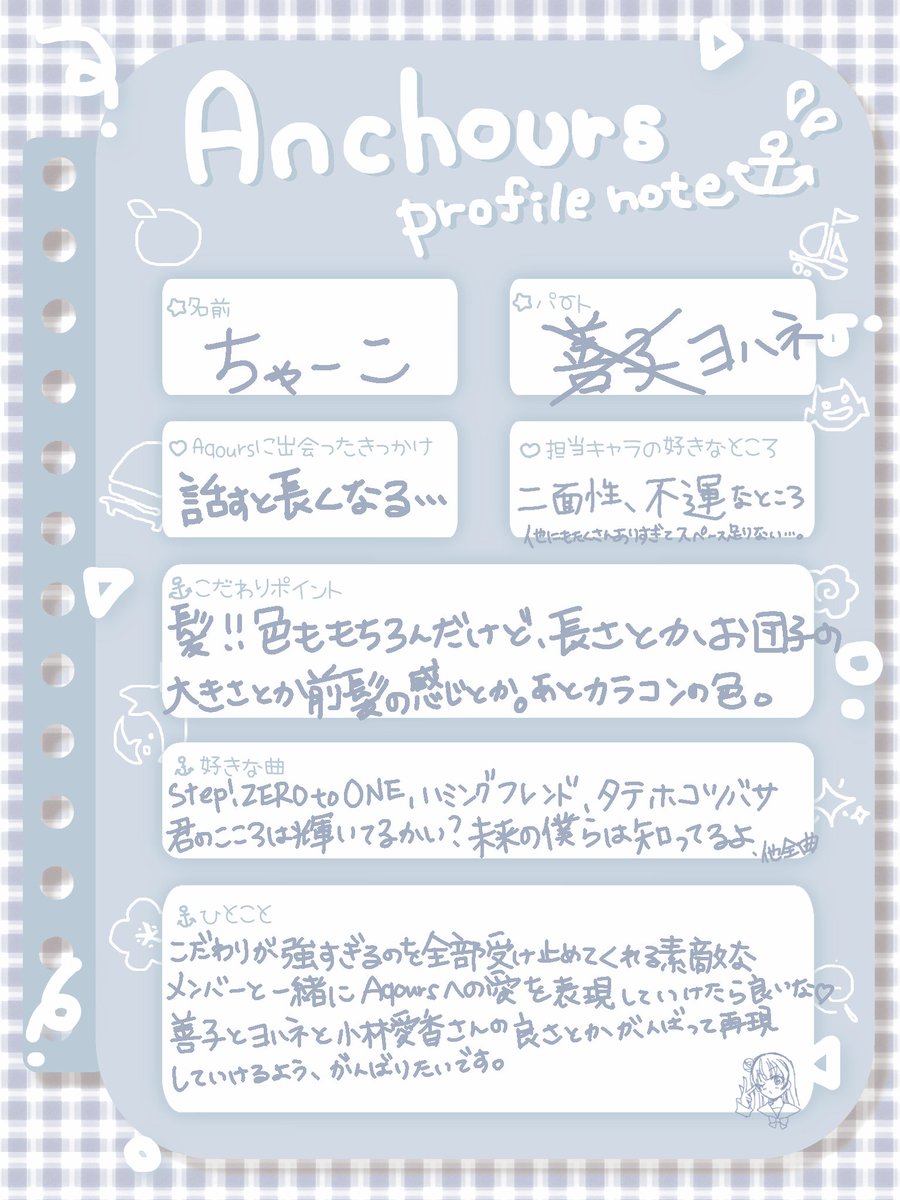 Anchours
profile note
名前
ちゃーこ
パート
善子 ヨハネ
Aqoursに出会ったきっかけ
話すと長くなる…
担当キャラの好きなところ
二面性、不運なところ
他にもたくさんありすぎてスペース足りない…。
こだわりポイント
髪!!色ももちろんだけど、長さとか、お団子の
大きさとか前髪の感じとか。あとカラコンの色。
好きな曲
Step! ZERO to ONE、ハミングフレンド、タテホコツバサ
君のこころは輝いてるかい?未来の僕らは知ってるよ、他全曲
ひとこと
こだわりが強すぎるのを全部受け止めてくれる素敵な
メンバーと一緒にAqoursへの愛を表現していけたら良いな♡
善子とヨハネと小林愛香さんの良さとかがんばって再現
していけるよう、がんばりたいです。